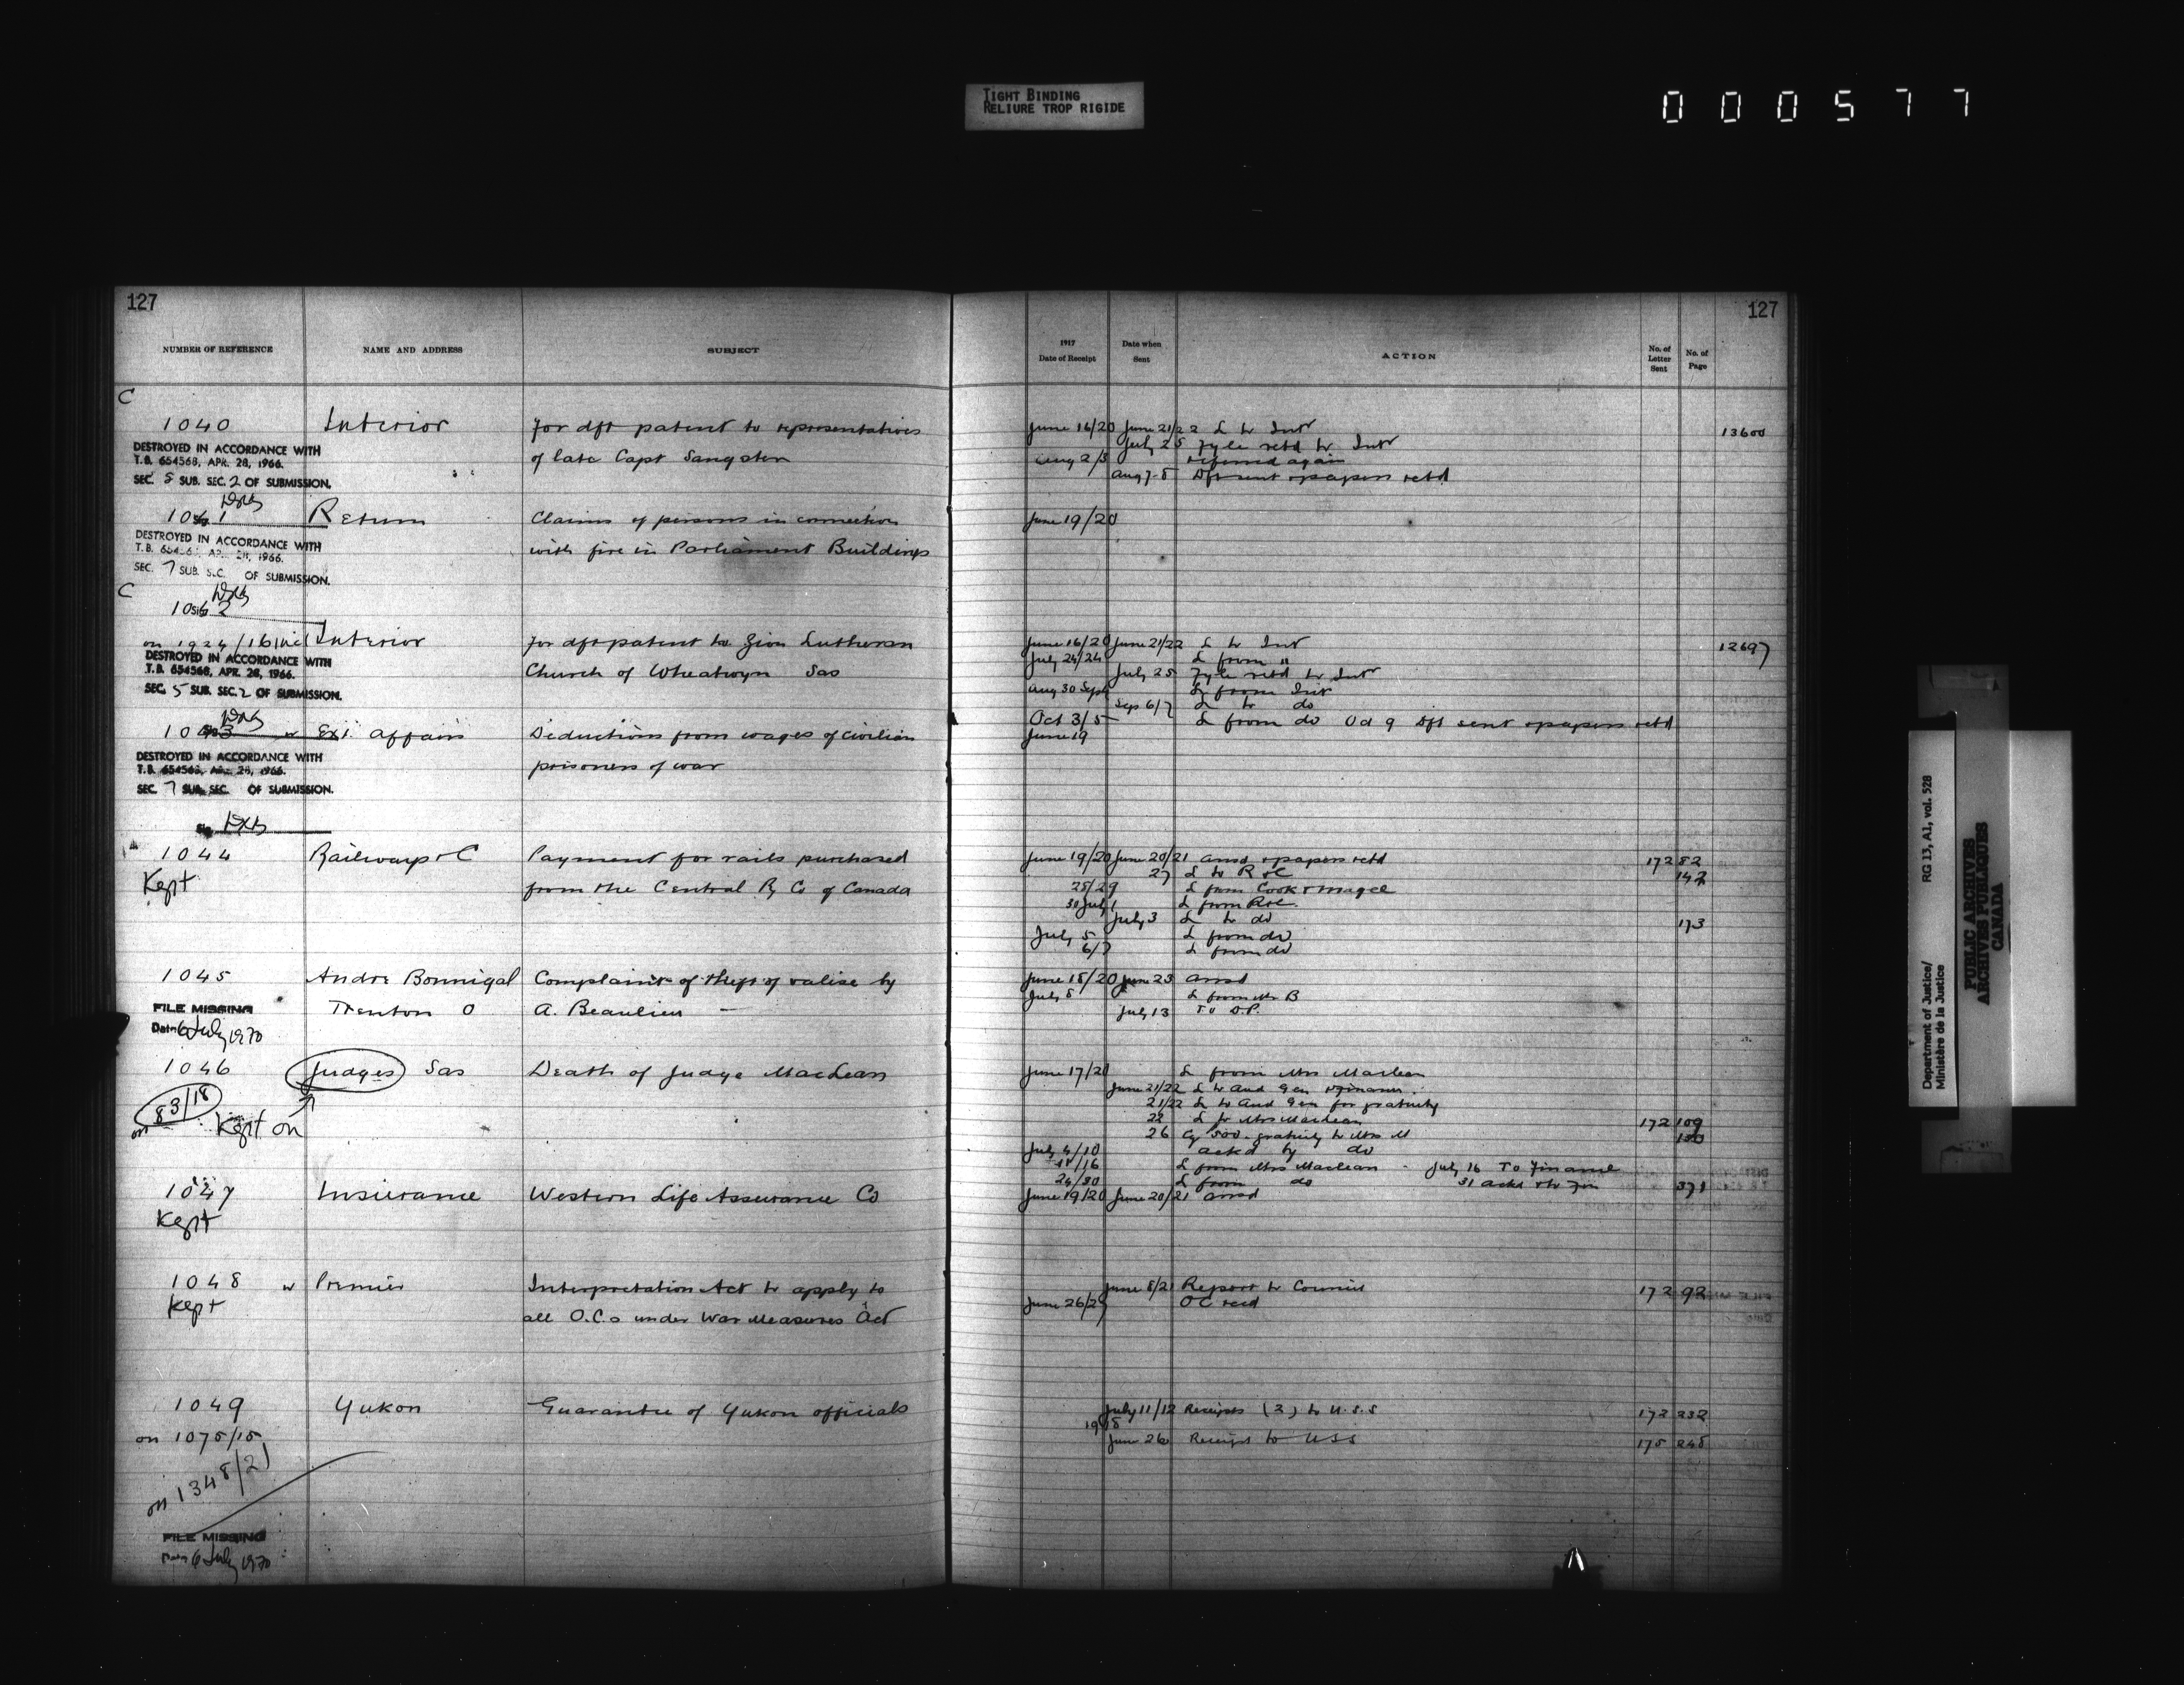 TIGHT BINDING
RELIURE TROP RIGIDE
000577
127
127
NUMBER OF REFERENCE
NAME AND ADDRESS
SUBJECT
1917
Date of Receipt
Date when
Sent
ACTION
No. of
Letter
Sent
No. of
Page
C
1040 Interior for dft patent to representatives
of late Capt Sangster
DESTROYED IN ACCORDANCE WITH
T.B. 654568, APR. 28, 1966.
SEC. 5 SUB. SEC. 2 OF SUBMISSION.
June 16/20 June 21/22 L to Intr 13600
July 25 Fyle retd to Intr
Aug 2/3 referred again
Aug 7-8 Dft sent & papers retd
1041 Return Claims of persons in connection
with fire in Parliament Buildings
June 19/20
DESTROYED IN ACCORDANCE WITH
T.B. 654568, APR. 28, 1966.
SEC. 7 SUB. SEC. OF SUBMISSION.
C
1042
on 1924/16 Interior for dft patent to Zion Lutheran
Church of Wheatwyn Sas
DESTROYED IN ACCORDANCE WITH
T.B. 654568, APR. 28, 1966.
SEC. 5 SUB. SEC. 2 OF SUBMISSION.
June 16/20 June 21/22 L to Intr 12697
July 24/24 L from "
July 25 Fyle retd to Intr
Aug 30 Sep L from Intr
Sep 6/7 L to do
Oct 3/5 L from do Oct 9 Dft sent & papers retd
1043 Ext. Affairs Deductions from wages of civilian
prisoners of war
June 19
DESTROYED IN ACCORDANCE WITH
T.B. 654568, APR. 28, 1966.
SEC. 7 SUB. SEC. OF SUBMISSION.
1044 Railways & C Payment for rails purchased
Kept from the Central Ry Co of Canada
June 19/20 June 20/21 ansd & papers retd 172 82
27 L to R & C 142
28/29 L from Cook & Magee
30 July 1 L from R&C.
July 3 L to do 173
July 5 L from do
6/7 L from do
1045 Andre Bonnigal Complaint of theft of valise by
Trenton O A. Beaulieu —
FILE MISSING
Date 6 July 1970
June 18/20 June 23 ansd
July 8 L from Mr B
July 13 To D.P.
1046 Judges Sas Death of Judge MacLean
on 83/18 Kept on
June 17/20 L from Mrs Maclean
June 21/22 L to Aud Gen & Finance
21/22 L to Aud Gen for gratuity
22 L to Mrs Maclean 172 109
26 Cq 500 - gratuity to Mrs M 130
July 4/10 ackd by do
11/16 L from Mrs Maclean - July 16 To Finance
24/30 L from do 31 ackd & to Fin 371
1047 Insurance Western Life Assurance Co
Kept
June 19/20 June 20/21 ansd
1048 Premier Interpretation Act to apply to
Kept all O.C.s under War Measures Act
June 8/21 Report to Council 172 92
June 26/27 OC recd
1049 Yukon Guarantee of Yukon officials
on 1075/15
on 1348/21
July 11/12 Receipts (2) to U.S.S 172 232
1918
June 26 Receipt to USS 175 248
FILE MISSING
Date 6 July 1970
Department of Justice/
Ministère de la Justice
RG 13, A1, vol. 528
PUBLIC ARCHIVES
ARCHIVES PUBLIQUES
CANADA